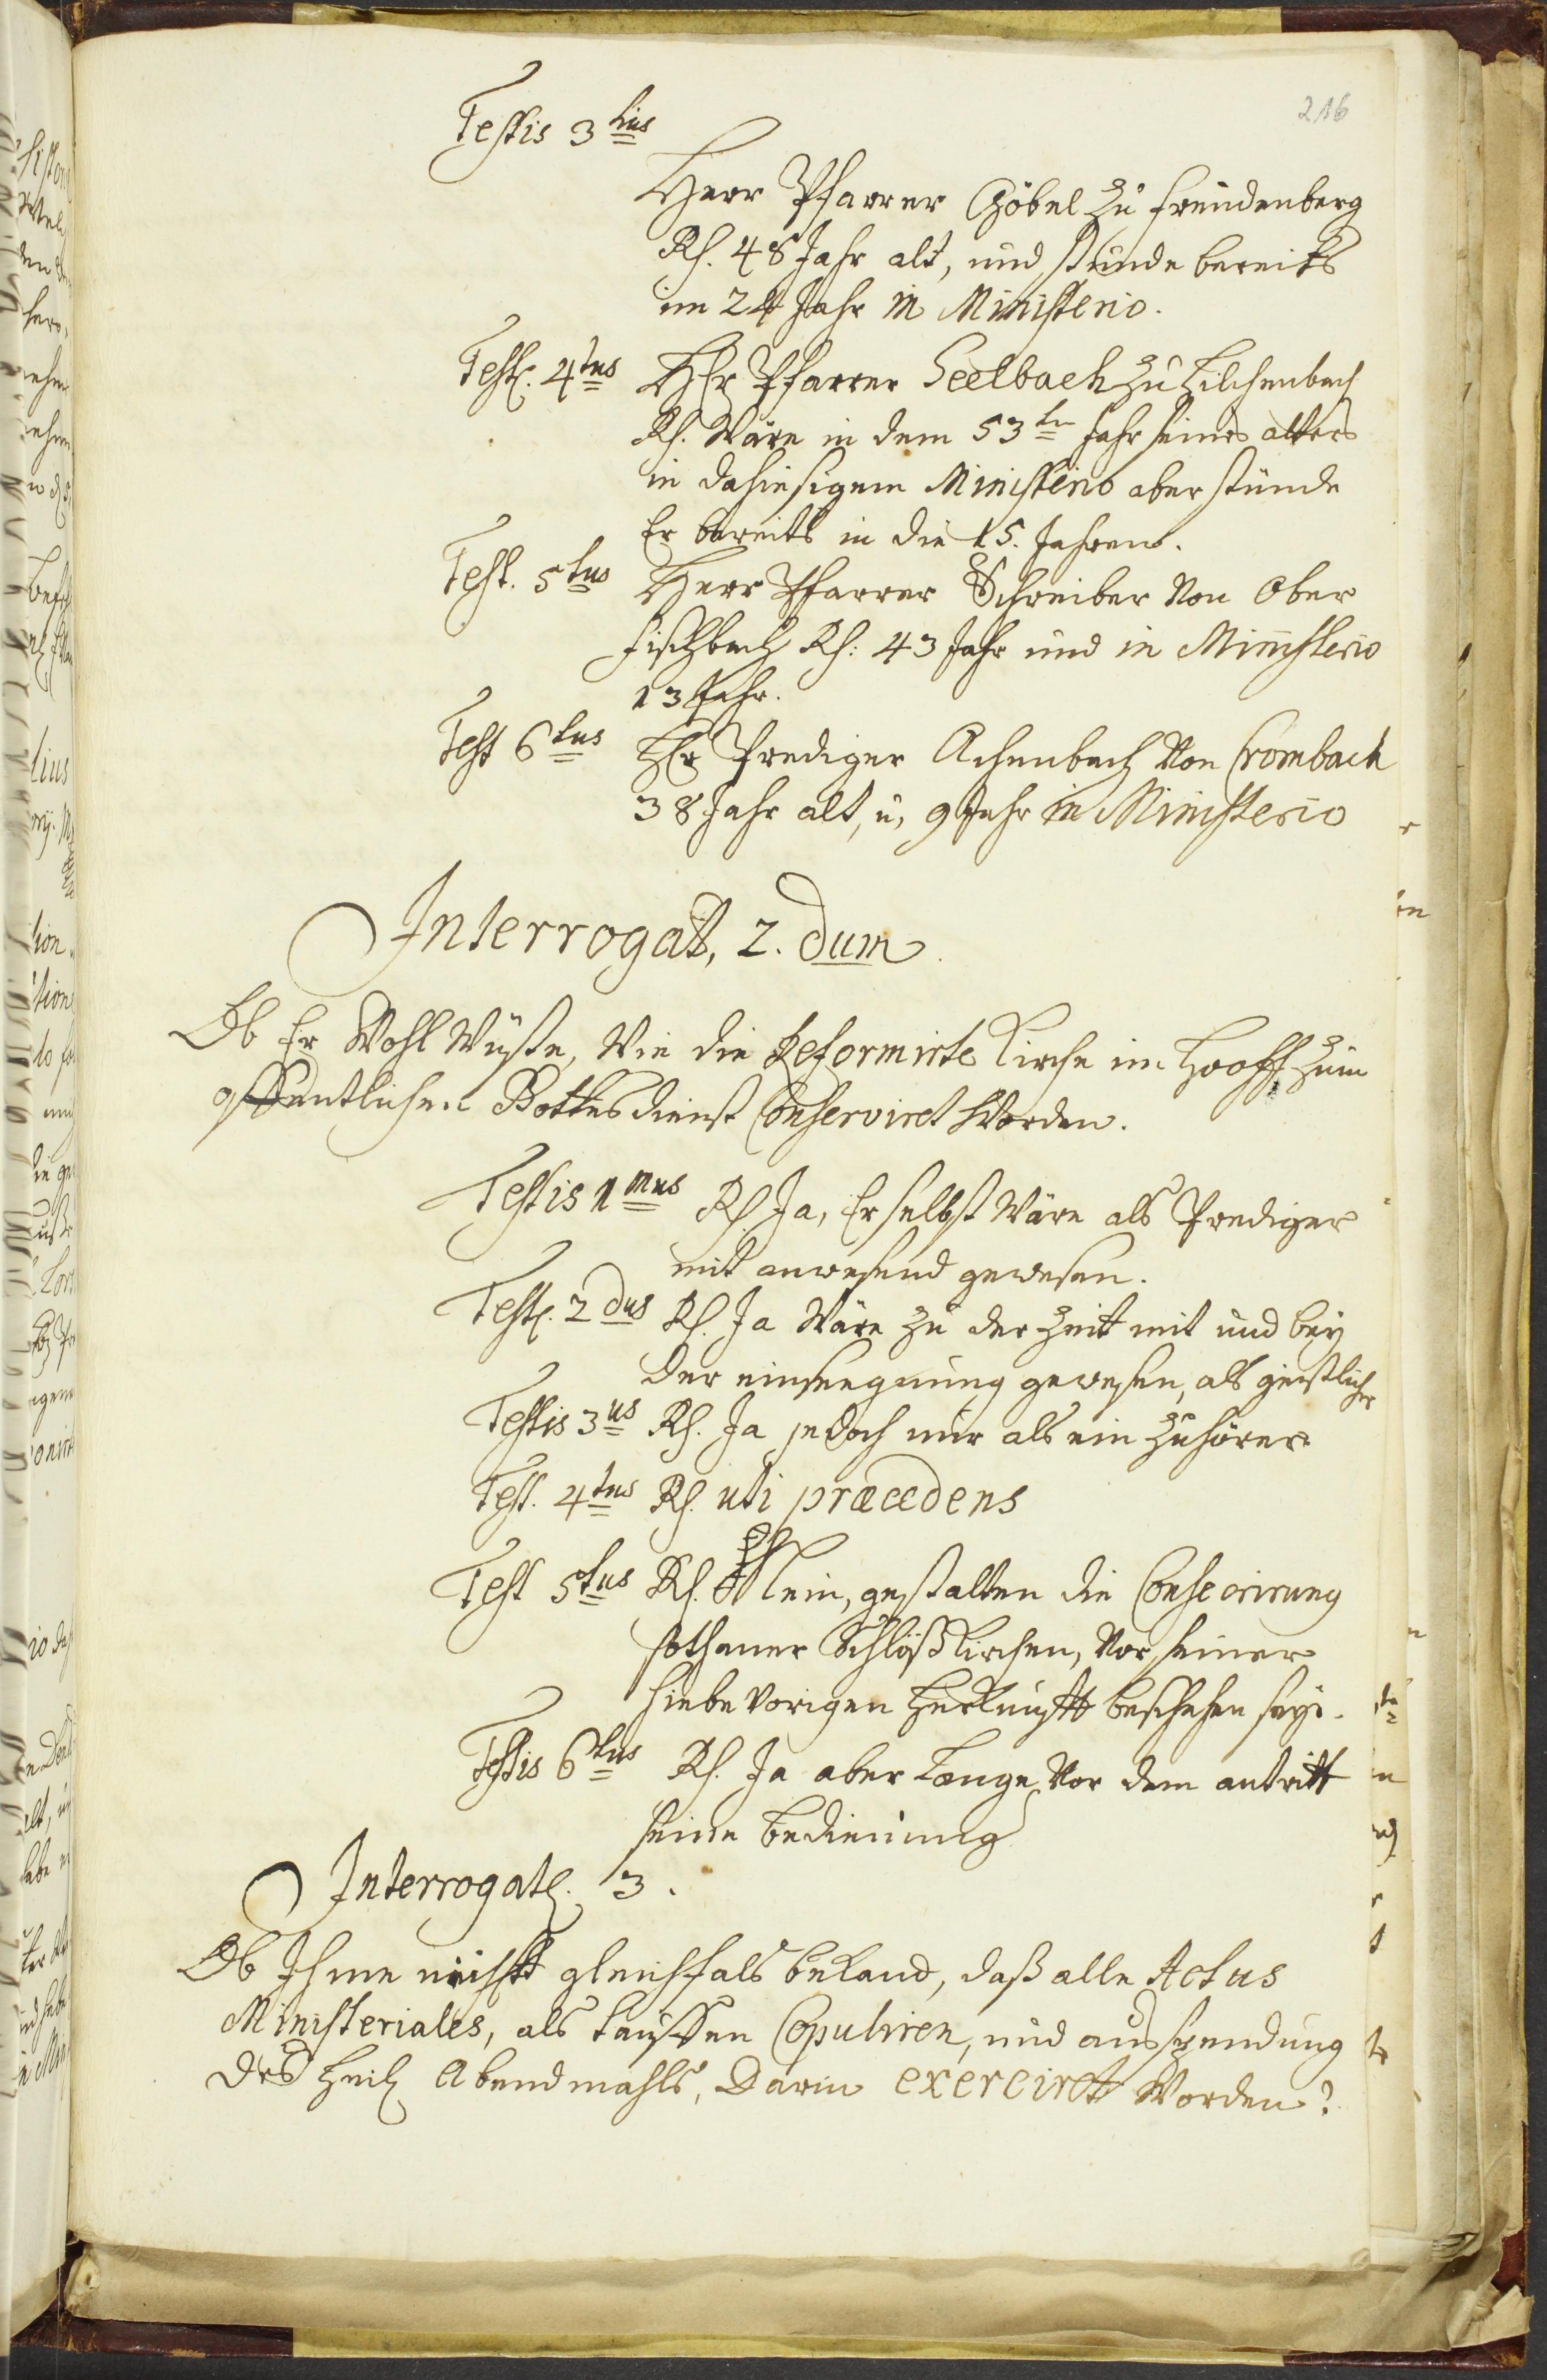 216
Testis 3tius
Herr Pfarrer Göbel zu freudenberg
Rs. 48 Jahr alt, und stünde bereits
im 24 Jahr in Ministerio.
Test. 4tus Hr Pfarrer Seelbach zu Hilchenbach
Rs. Wäre in dem 53ten Jahr seines alters
in dahiesigem Ministerio aber stünde
Er bereits in die 15. Jahren.
Test. 5tus Herr Pfarrer Schreiber Von Ober
fischbach Rs: 43 Jahr und in Ministerio
13 Jahr.
Test 6tus Hr Prediger Achenbach Von Crombach
38 Jahr alt, u, 9 Jahr in Ministerio
Interrogat, 2. dum
Ob Er Wohl Wüste, Wie die Reformirte Kirche im Hooff zum
offentlichen Gottesdienst Conserviret Worden.
Testis 1mus Rs Ja, Er selbst Wäre als Prediger
mit anwesend gewesen.
Test. 2dus Rs. Ja Wäre zu der Zeit mit und bey
der einseegnung gewesen, als geistlicher
Testis 3us Rs. Ja jedoch nur als ein Zuhörer
Test. 4tus Rs. uti præcedens
Test 5tus Rs. Nein, gestalten die Consecrirung
sothaner Schloßkirchen, Vor seiner
hiebevorigen Herkunfft beschehen seye.
Testis 6tus Rs. Ja aber Lange Vor dem antritt
seine bedienung
Interrogat. 3.
Ob Ihme nicht gleichfals bekand, daß alle Actus
Ministeriales, als tauffen Copuliren, und ausspendung
des Heil Abendmahls, Darin exerciret Worden?